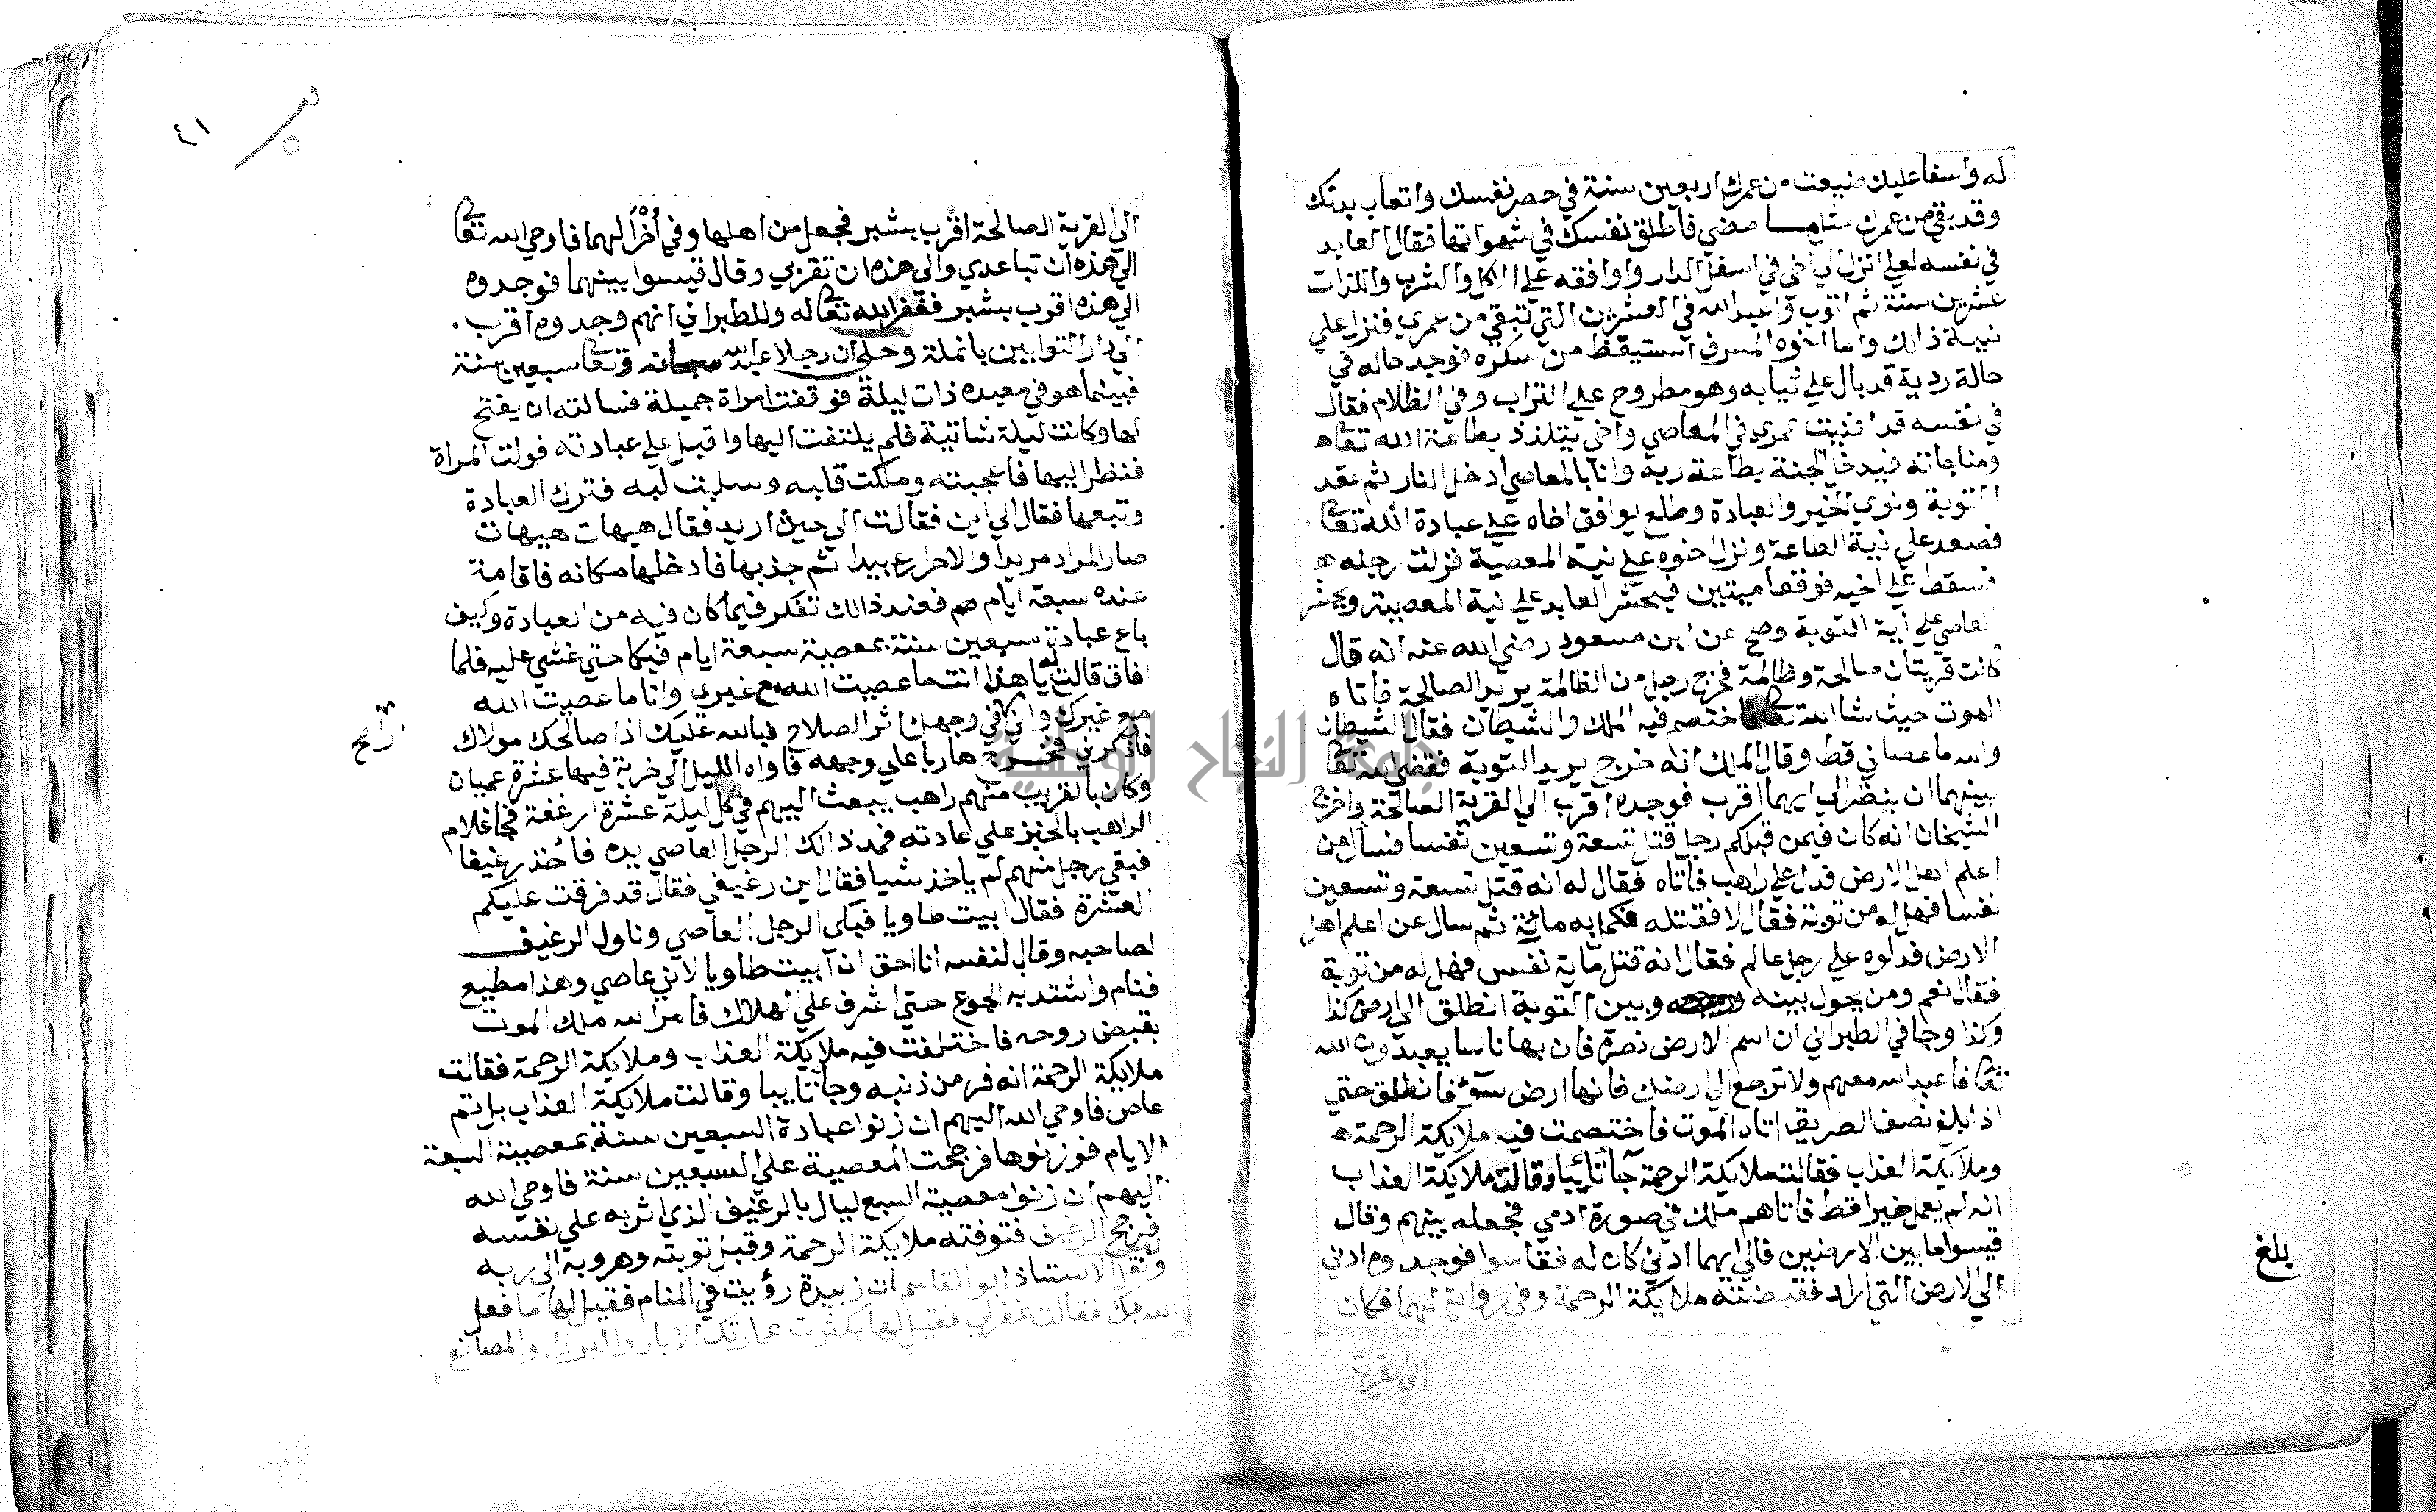 له واسفا عليك ضيعت من عمرك اربعين سنة في حصر نفسك واتعاب بدنك
وقد بقي من عمرك مثل ما مضي فاطلق نفسك في شهواتها فقال العابد
في نفسه لعلي انزل الي اخي في اسفل الدار واوافقه علي الاكل والشرب واللذات
عشرين سنة ثم اتوب واعبد الله في العشرين التي تبقي من عمري فنزل علي
نية ذالك واما اخوه المسرف استيقظ من سكره فوجد حاله في
حالة ردية قد بال علي ثيابه وهو مطروح علي التراب وفي الظلام فقال
في نفسه قد افنيت عمري في المعاصي واخي يتلذذ بطاعة الله تعالى
ومناجاته فيدخل الجنة بطاعة ربه وانا بالمعاصي ادخل النار ثم عقد
التوبة ونوي الخير والعبادة وطلع يوافق اخاه علي عبادة الله تعالى
فصعد علي نية الطاعة ونزل اخوه علي نية المعصية فزلت رجله
فسقط علي اخيه فوقعا ميتين فيحشر العابد علي نية المعصية ويحشر
العاصي علي نية التوبة وصح عن ابن مسعود رضي الله عنه انه قال
كانت قريتان صالحة وظالمة فخرج رجل من الظالمة يريد الصالحة فاتاه
الموت حيث شا الله تعالى فاختصم فيه الملك والشيطان فقال الشيطان
والله ما عصاني قط وقال الملك انه خرج يريد التوبة فقضي الله تعالى
بينهما ان ينظر الي ايهما اقرب فوجده اقرب الي القرية الصالحة واخرج
الشيخان انه كان فيمن قبلكم رجل قتل تسعة وتسعين نفسا فسال من
اعلم اهل الارض فدل علي راهب فاتاه فقال له انه قتل تسعة وتسعين
نفسا فهل له من توبة فقال لا فقتله فكمل به مائة ثم سال عن اعلم اهل
الارض فدلوه علي رجل عالم فقال انه قتل ماية نفس فهل له من توبة
فقال نعم ومن يحول بينه وبين التوبة انطلق الي ارض كذا
وكذا وجا في الطبراني ان اسم الارض نصرة فان بها ناسا يعبدون الله
تعالى فاعبد الله معهم ولا ترجع الي ارضك فانها ارض سوء فانطلق حتي
اذا بلغ نصف الطريق اتاه الموت فاختصمت فيه ملايكة الرحمة
وملايكة العذاب فقالت ملايكة الرحمة جا تايبا وقالت ملايكة العذاب
انه لم يعمل خيرا قط فاتاهم ملك في صورة ادمي فجعله بينهم وقال
قيسوا ما بين الارضين فالي ايهما ادني كان له فقاسوا فوجدوه ادني
الي الارض التي اراد فقبضته ملايكة الرحمة وفي رواية لهما فكان
الي القرية
بلغ
٤١
الي القرية الصالحة اقرب بشبر فجعل من اهلها وفي أخرَا لهما فاوحي الله تعالى
الي هذه ان تباعدي والي هذه ان تقربي وقال قيسوا بينهما فوجدوه
الي هذه اقرب بشبر فغفر الله تعالى له وللطبراني انهم وجدوه اقرب
الي دار التوابين بانملة وحكي ان رجلا عبد الله سبحانه وتعالى سبعين سنة
فبينما هو في معبده ذات ليلة فوقفت امراة جميلة فسالته ان يفتح
لها وكانت ليلة شاتية فلم يلتفت اليها واقبل علي عبادته فولت المراة
فنظر اليها فاعجبته وملكت قلبه وسلبت لبه فترك العبادة
وتبعها فقال الي اين فقالت الي حيث اريد فقال هيهات هيهات
صار المراد مريدا والاحرار عبيدا ثم جذبها فادخلها مكانه فاقامة
عنده سبعة ايام فعند ذالك تفكر فيما كان فيه من العبادة وكيف
باع عبادة سبعين سنة بمعصية سبعة ايام فبكا حتي غشي عليه فلما
افاق قالت له يا هذا انت ما عصيت الله مع غيري وانا ما عصيت الله
مع غيرك واني اري في وجهك اثر الصلاح فبالله عليك اذا صالحك مولاك
فاذكرني فخرج هاربا علي وجهه فاواه الليل الي خربة فيها عشرة عميان
وكان بالقريب منهم راهب يبعث اليهم في كل ليلة عشرة ارغفة فجا غلام
الراهب بالخبز علي عادته فمد ذالك الرجل العاصي يده فاخذ رغيفا
فبقي رجل منهم لم ياخذ شيا فقال اين رغيفي فقال قد فرقت عليكم
العشرة فقال ابيت طاويا فبكي الرجل العاصي وناول الرغيف
لصاحبه وقال لنفسه انا احق ان ابيت طاويا لاني عاصي وهذا مطيع
فنام واشتد به الجوع حتي اشرف علي الهلاك فامر الله ملك الموت
بقبض روحه فاختلفت فيه ملايكة العذاب وملايكة الرحمة فقالت
ملايكة الرحمة انه فر من ذنبه وجا تايبا وقالت ملايكة العذاب بل تم
عاص فاوحي الله اليهم ان زنوا عبادة السبعين سنة بمعصية السبعة
الايام فوزنوها فرجحت المعصية علي السبعين سنة فاوحي الله
اليهم ان زنوا معصية السبع ليال بالرغيف الذي اثر به علي نفسه
فرجح الرغيف فتوفته ملايكة الرحمة وقبل توبته وهروبه الي ربه
ونقل الاستاذ ابو القاسم ان زبيدة رؤيت في المنام فقيل لها ما فعل
الله بك فقالت غفر لي فقيل لها بكثرت عمارتك الابار والبرك والمصانع
جامعة النجاح الوطنية